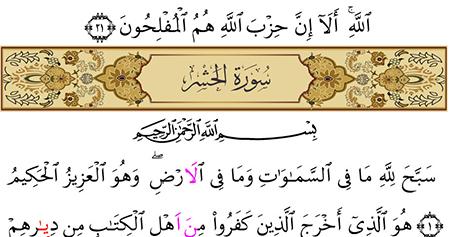 اللَّهِ ۚ أَلَآ إِنَّ حِزْبَ اللَّهِ هُمُ الْمُفْلِحُونَ ﴿٢١﴾
سُورَةُ الْحَشْرِ
بِسْمِ اللَّهِ الرَّحْمَٰنِ الرَّحِيمِ
سَبَّحَ لِلَّهِ مَا فِى السَّمَـٰوَٰتِ وَمَا فِى الَارْضِ ۖ وَهُوَ الْعَزِيزُ الْحَكِيمُ
﴿١﴾ هُوَ الَّذِىٓ أَخْرَجَ الَّذِينَ كَفَرُواْ مِنَ اَهْلِ الْكِتَـٰبِ مِن دِيـٰرِهِمْ